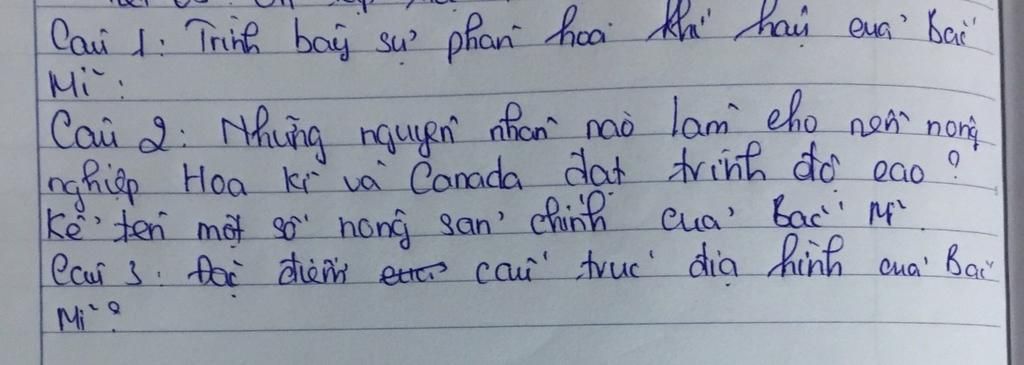 Câu 1: Trình bày sự phân hoá khí hậu của Bắc
Mĩ:
Câu 2: Những nguyên nhân nào làm cho nền nông
nghiệp Hoa Kì và Canada đạt trình độ cao?
Kể tên một số nông sản chính của Bắc Mĩ
Câu 3: Đặc điểm cấu trúc địa hình của Bắc
Mĩ?